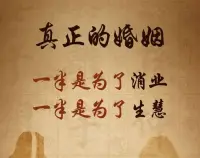 真正的婚姻
一半是为了消业
一半是为了生慧